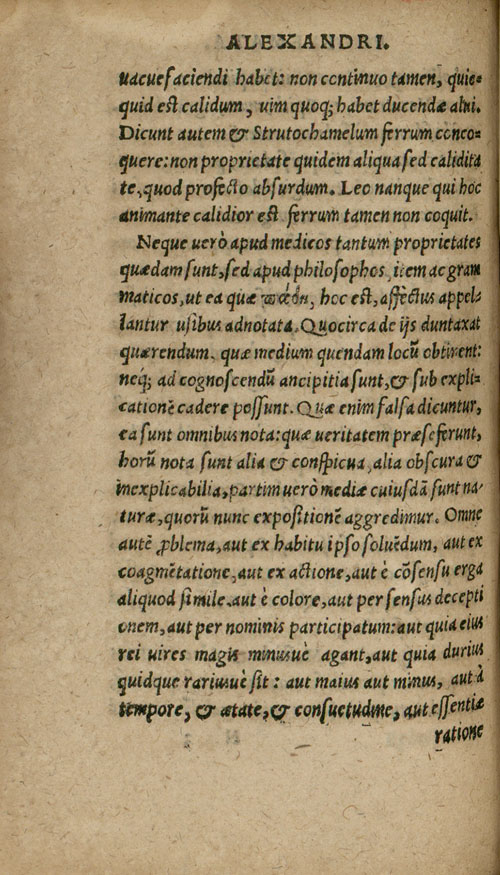 ALEXANDRI.
uacuefaciendi habet: non continuo tamen, quic-
quid est calidum, uim quoq; habet ducendæ alui.
Dicunt autem & Strutochamelum ferrum conco-
quere: non proprietate quidem aliqua sed calidita
te, quod profecto absurdum. Leo nanque qui hoc
animante calidior est ferrum tamen non coquit.
Neque uerò apud medicos tantum proprietates
quædam sunt, sed apud philosophos, item ac gram
maticos, ut ea quæ πάθη, hoc est, affectus appel-
lantur usibus adnotata. Quocirca de ijs duntaxat
quærendum, quæ medium quendam locū obtinent:
neq; ad cognoscendū ancipitia sunt, & sub expli-
cationē cadere possunt. Quæ enim falsa dicuntur,
ea sunt omnibus nota: quæ ueritatem præseferunt,
horū nota sunt alia & conspicua, alia obscura &
inexplicabilia, partim uerò mediæ cuiusdā sunt na-
turæ, quorū nunc expositionē aggredimur. Omne
autē ꝓblema, aut ex habitu ipso soluēdum, aut ex
coagmētatione, aut ex actione, aut è cōsensu erga
aliquod simile. aut è colore, aut per sensus decepti
onem, aut per nominis participatum: aut quia eius
rei uires magis minusuè agant, aut quia durius
quidque rariusuè sit: aut maius aut minus, aut à
tempore, & ætate, & consuetudine, aut essentiæ
ratione